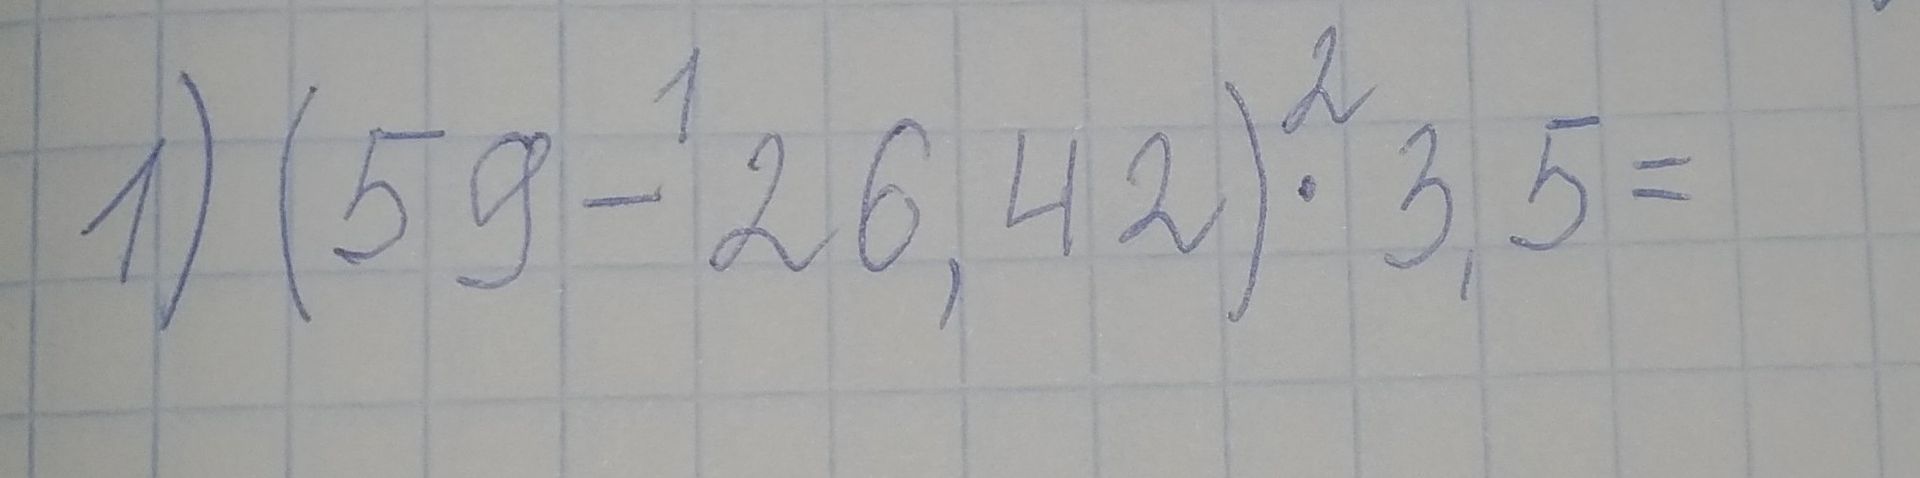 1) (59 -¹ 26,42) ·² 3,5 =